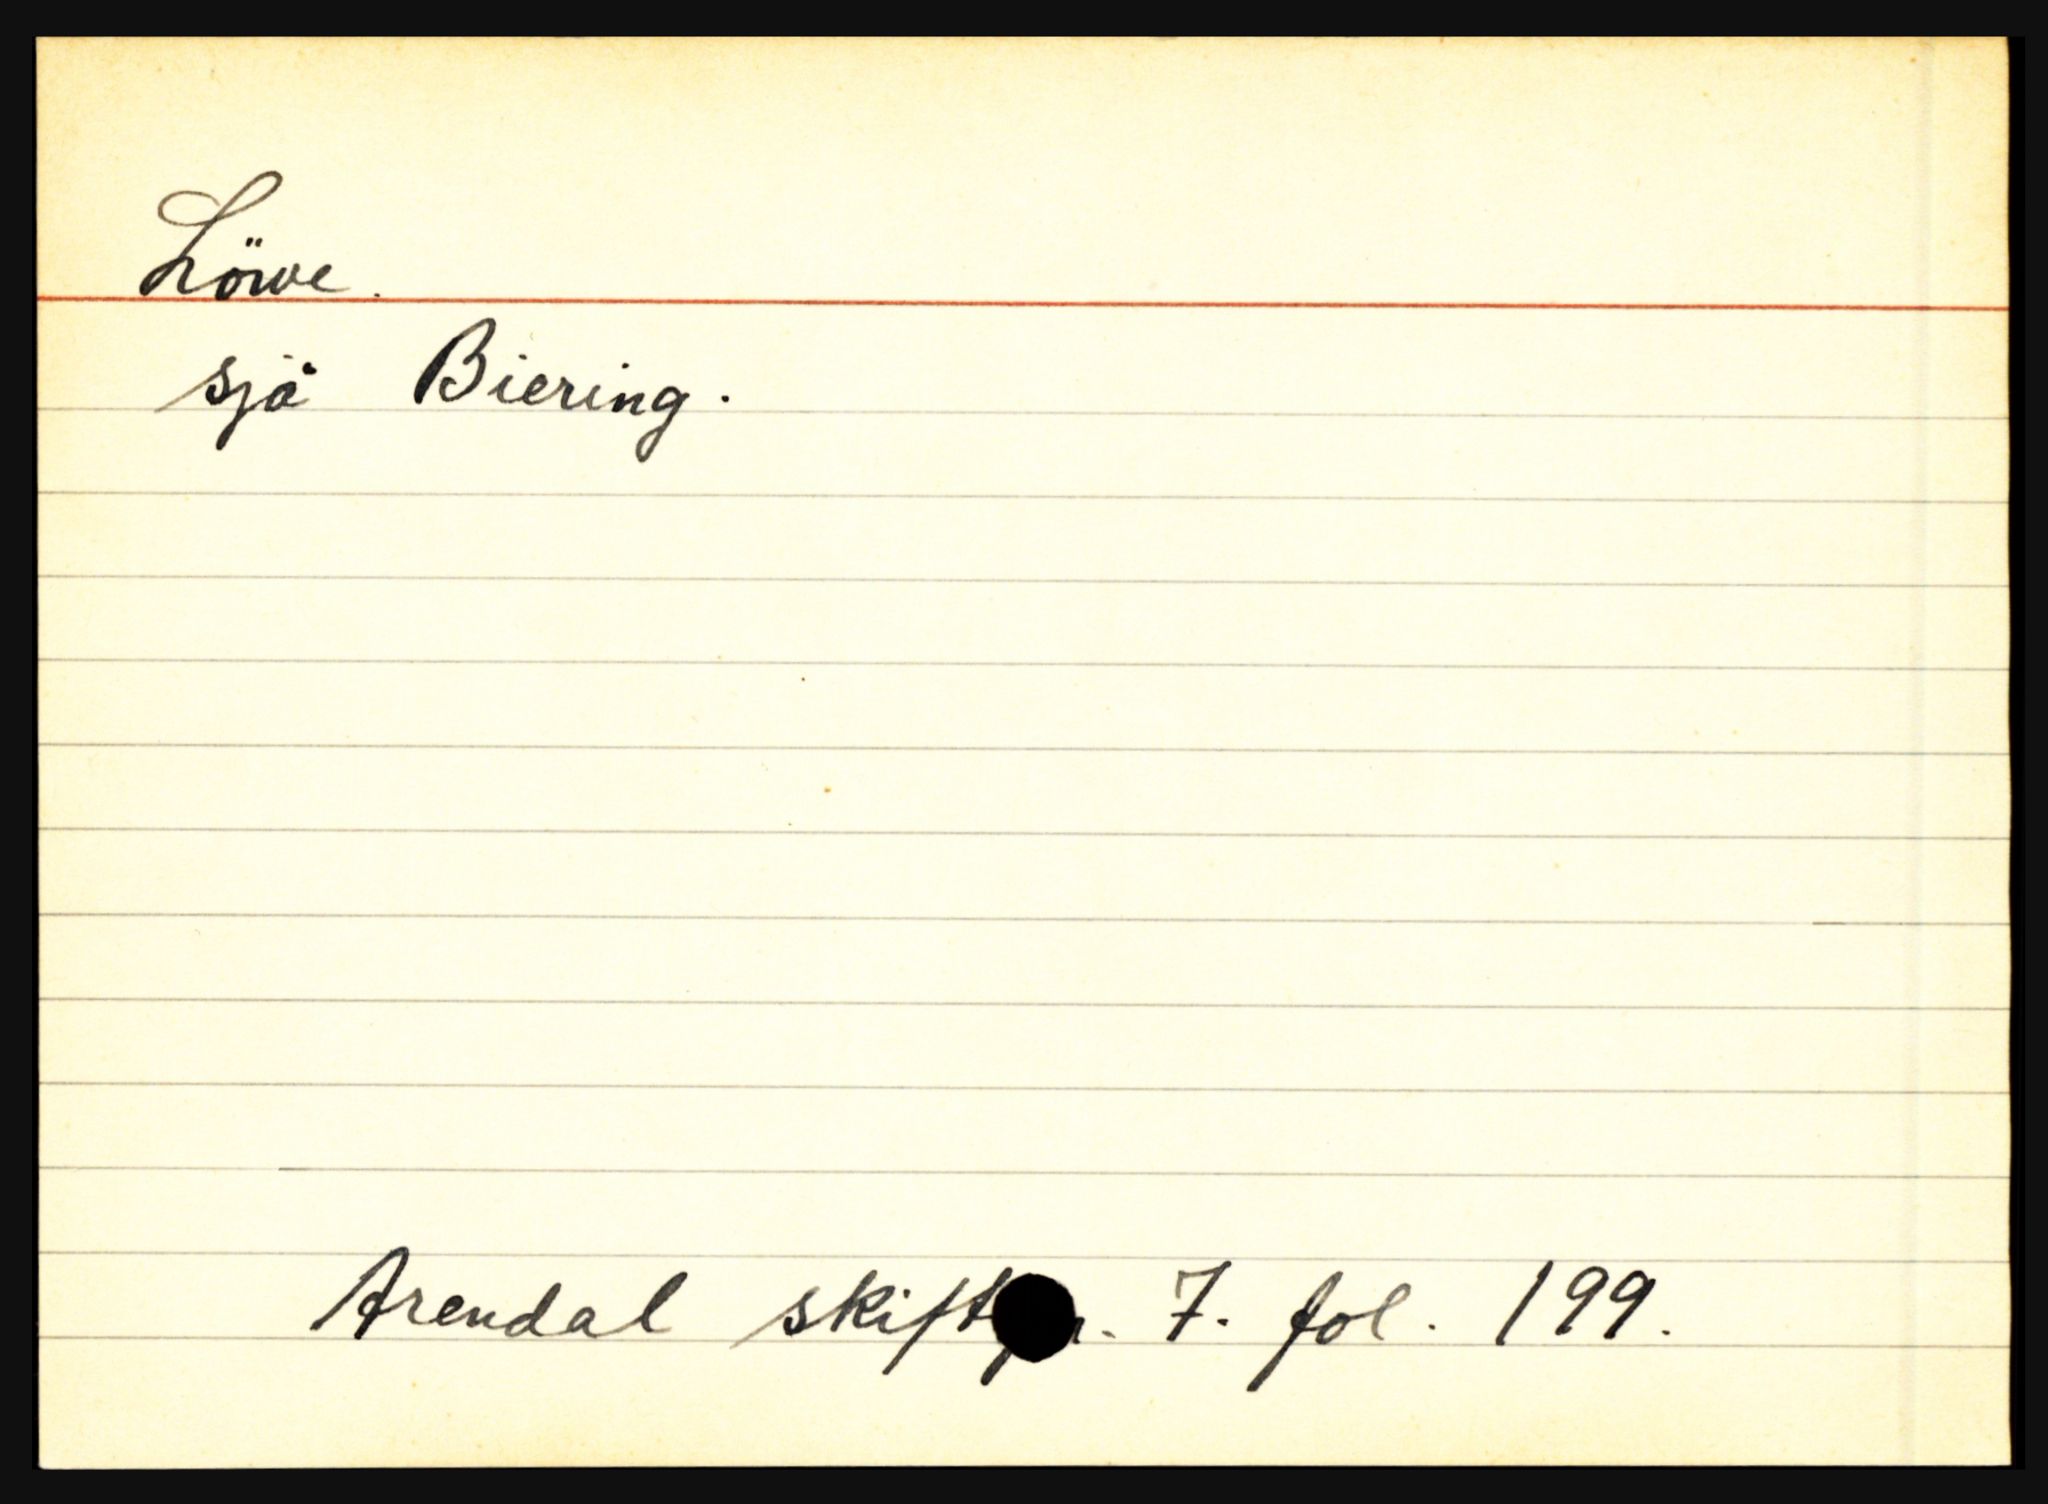 Löwe.
sjå Biering.
Arendal 7. fol. 199.